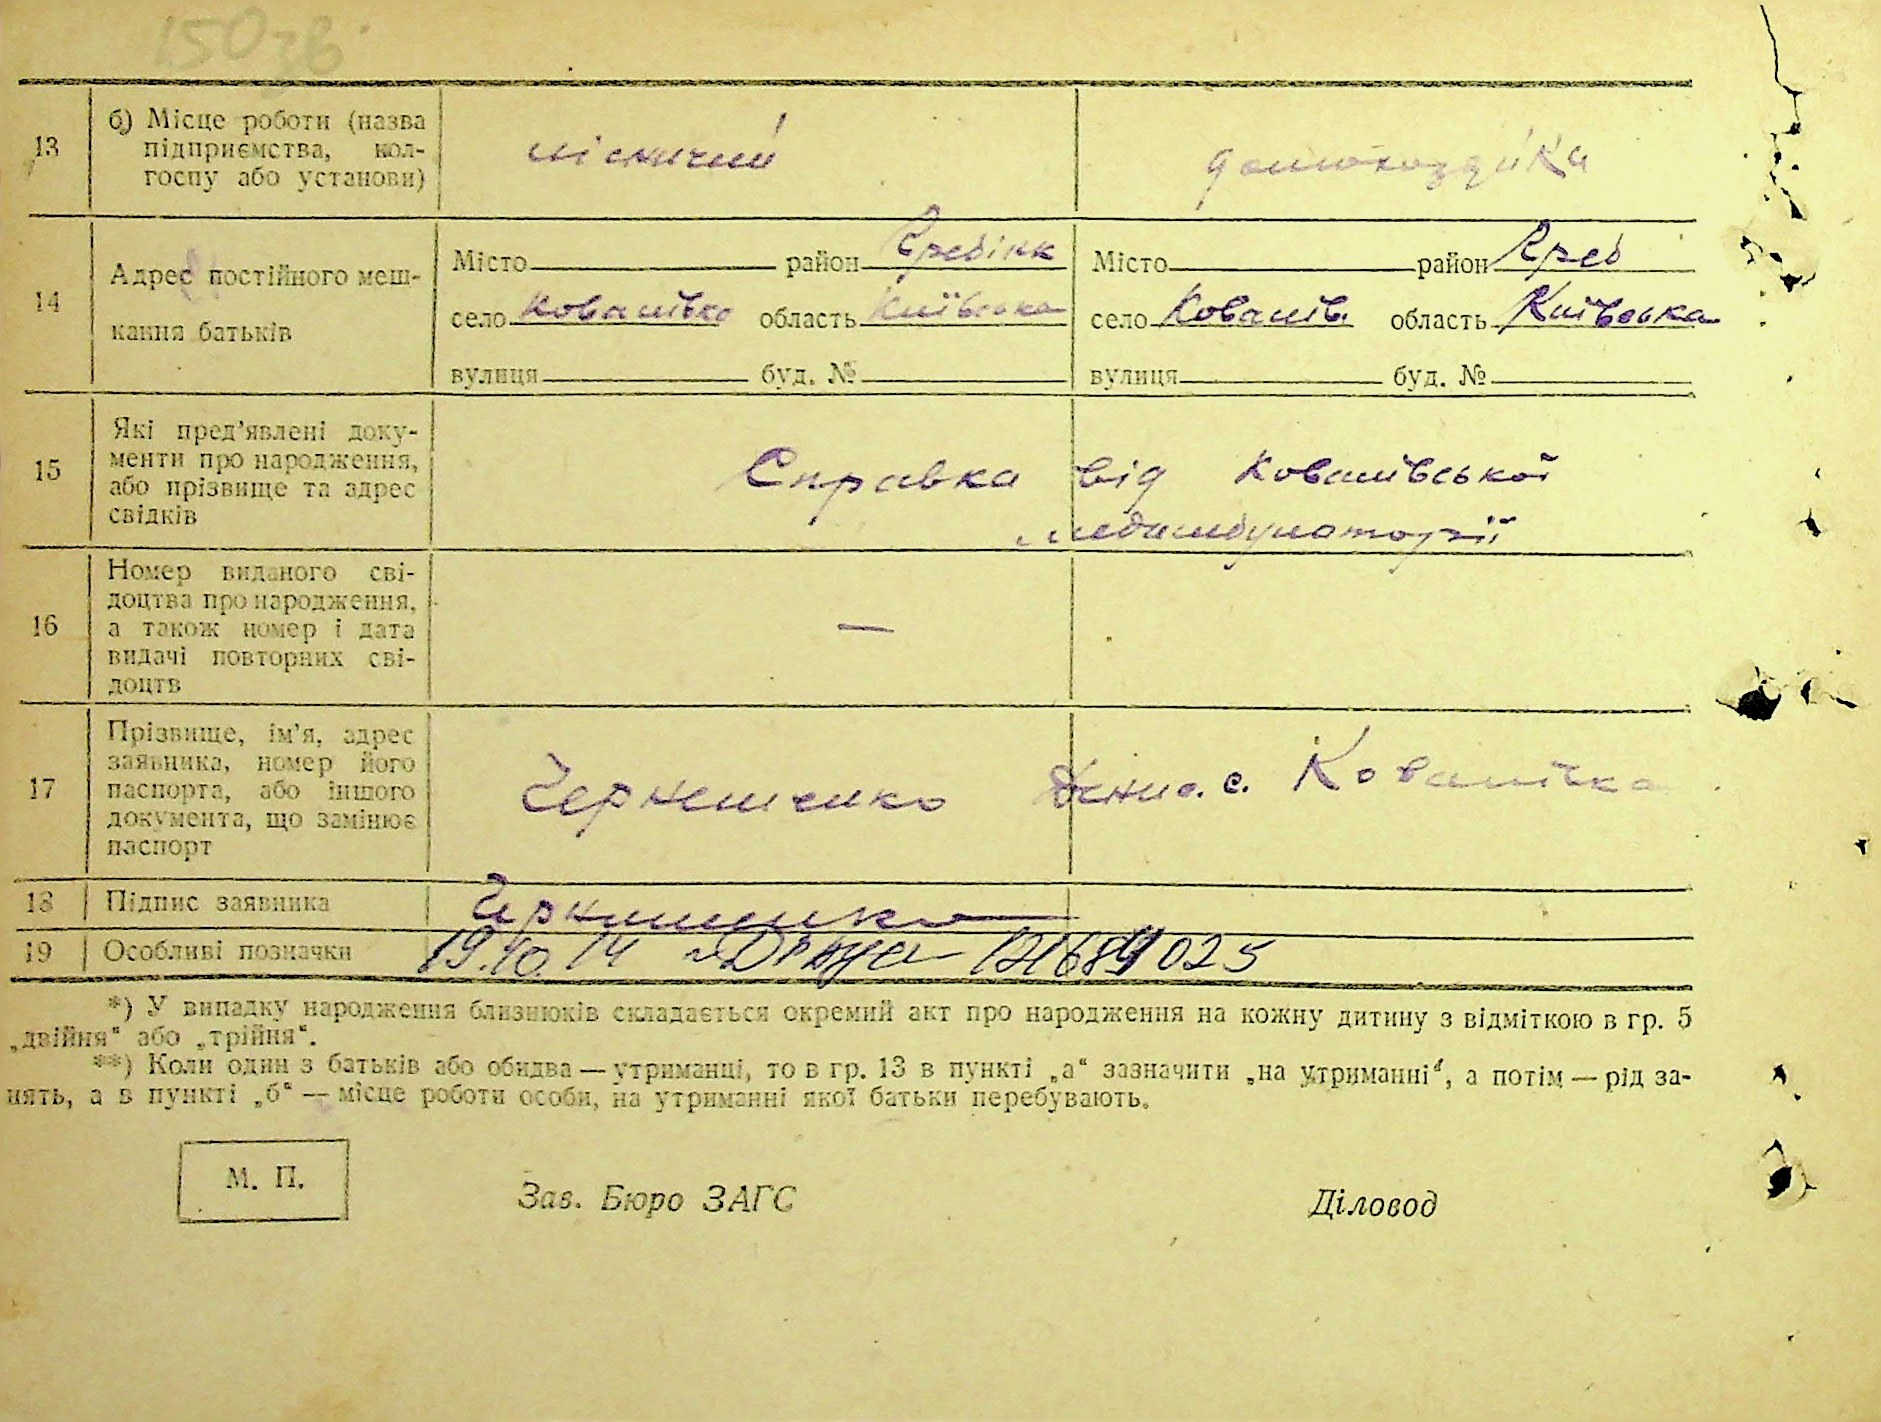 150зв.
13 б) Місце роботи (назва підприємства, кол-госпу або установи) лісничий домохоздйка
Місто район Гребінк Місто район Греб
14 Адрес постійного меш-кання батьків село Ковалівка область Київська село Ковалів. область Київська
вулиця буд. № вулиця буд. №
15 Які пред'явлені доку-
менти про народження, Справка від Ковалівської
або прізвище та адрес
свідків медамбулаторії
16 Номер виданого сві-
доцтва про народження,
а також номер і дата —
видачі повторних сві-
доцтв
17 Прізвище, ім'я, адрес
заявника, номер його
паспорта, або іншого Чернешенко с. Ковалівка
документа, що замінює
паспорт
18 Підпис заявника
19 Особливі позначки 19.10.14
*) У випадку народження близнюків складається окремий акт про народження на кожну дитину з відміткою в гр. 5
„двійня“ або „трійня“.
**) Коли один з батьків або обидва — утриманці, то в гр. 13 в пункті „а“ зазначити „на утриманні“, а потім — рід за-
нять, а в пункті „б“ — місце роботи особи, на утриманні якої батьки перебувають.
М. П.
Зав. Бюро ЗАГС Діловод